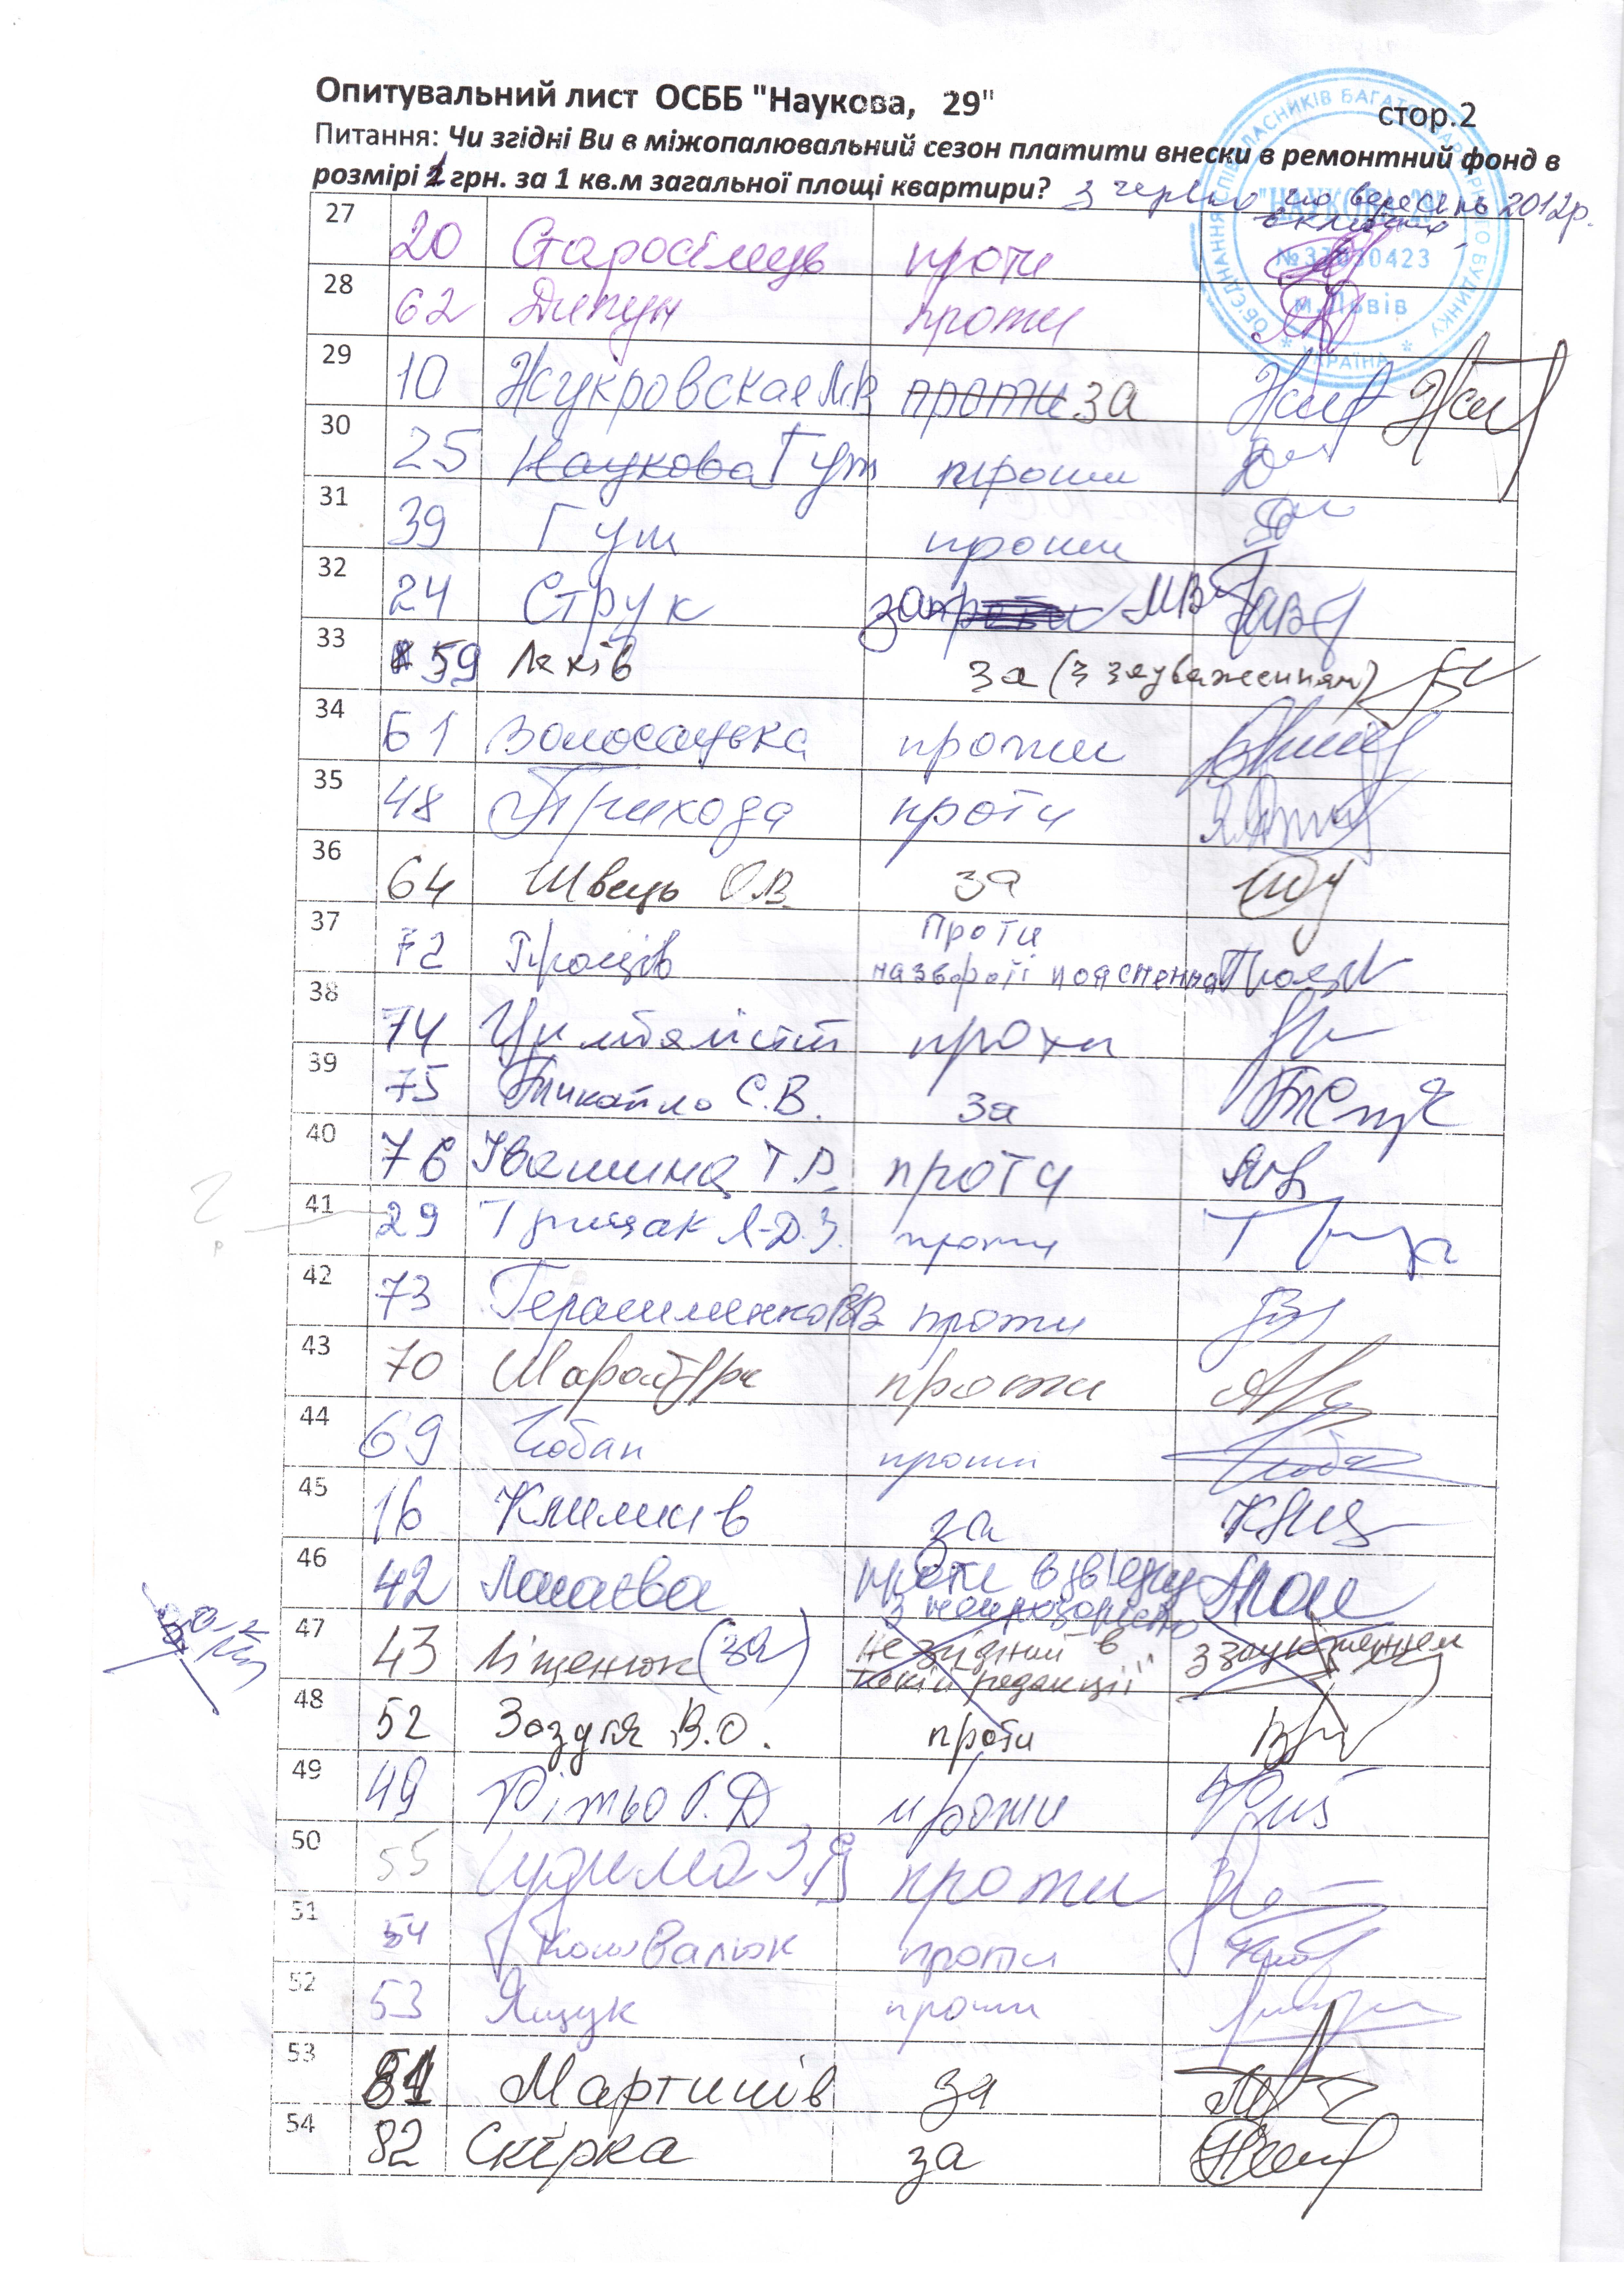 Опитувальний лист ОСББ "Наукова, 29"
стор.2
Питання: Чи згідні Ви в міжопалювальний сезон платити внески в ремонтний фонд в
розмірі 1 грн. за 1 кв.м загальної площі квартири? З червня по вересень 2012р.
включно
ОБ'ЄДНАННЯ СПІВВЛАСНИКІВ БАГАТОКВАРТИРНОГО БУДИНКУ
"НАУКОВА, 29"
м.Львів
* УКРАЇНА *
27 20 Старосілець проти
28 62 Дипун проти
29 10 Жукровская М.В проти за
30 25 Наукова Гут проти
31 39 Гут проти
32 24 Струк за проти МВ
33 59 Лехів за (з зауваженням)
34 61 Волосацька проти
35 48 Прихода проти
36 64 Швець О.В. за
37 72 Проців Проти
на звороті пояснення
38 74 Цимбаліст проти
39 75 Микайло С.В. за
40 76 Івашина Т.В. проти
41 29 Грицак Л-Д.З. проти
42 73 Герасименко В.В проти
43 70 Шарабура проти
44 69 Чобан проти
45 16 Климків за
46 42 Лапаєва проти в звязку
з непрозорістю
47 43 Ліщенюк (за) не згідний в з зауваженнем
такій редакції"
48 52 Воздля В.О. проти
49 49 Рітьо Г.Д проти
50 55 Чудима З.Я проти
51 54 Коновалюк проти
52 53 Ящук проти
53 81 Мартинів за
54 82 Скірка за